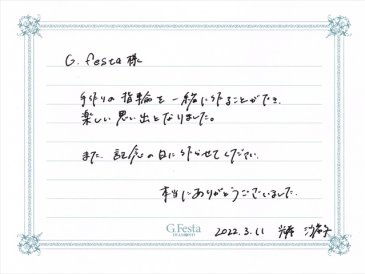 G.festa 様
手作りの指輪を一緒に作ることができ、
楽しい思い出となりました。
また、記念の日に作らせてください。
本当にありがとうございました。
G.Festa
2022.3.11